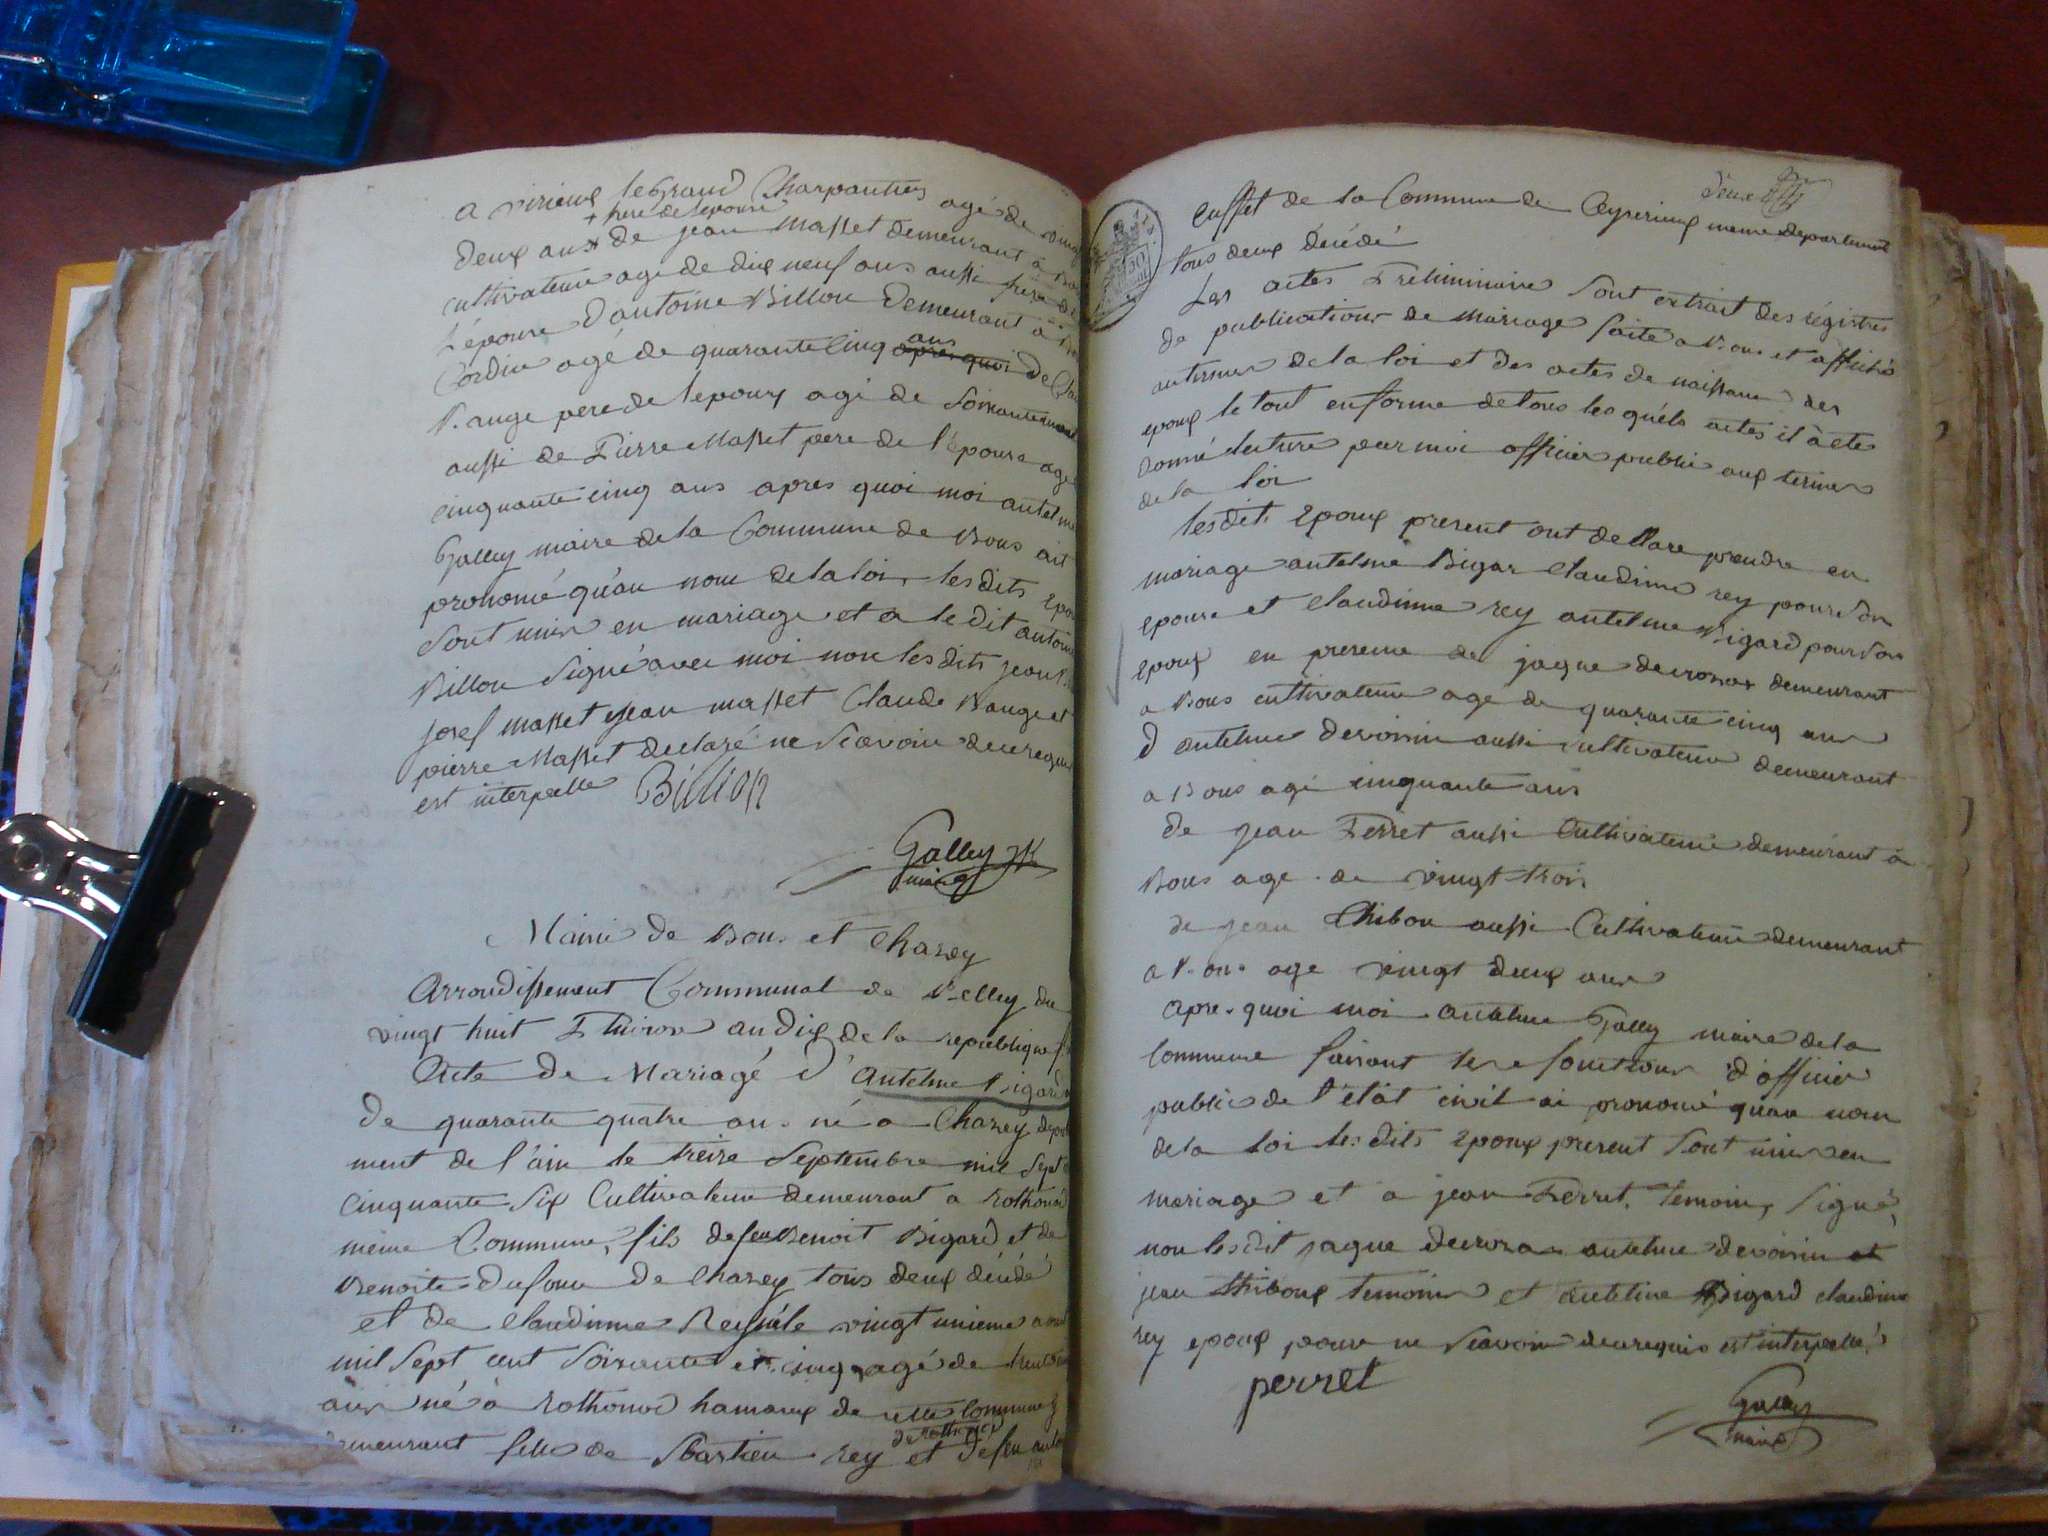 a virieux legrand Charpantier agé de vingt
+ frere de lepouse
deux ans + de jean Masset demeurant à
cultivateur agé de dix neuf ans aussi frere de
L'épouse d'antoine Billon demeurant à
Cordon agé de quarante cinq ans apres quoi de
Bauge pere de lepoux agé de soixante
aussi de Pierre Masset pere de l'épouse agé
cinquante cinq ans apres quoi moi antelme
Galley maire de la Commune de Bons ait
prononcé qu'au nom de la loi les dits epoux
sont unis en mariage et a le dit antoine
Billon Signé avec moi non les dits jean
josef masset jean masset Claude Bauge et
pierre Masset declaré ne Scavoir de ce requis
est interpelle Billion
Galley
maire
Mairie de Bons et Chazey
Arrondissement Communal de Belley du
vingt huit an dix de la republique
Acte de Mariagé d'Antelme Bigard
de quarante quatre ans né a Chazey depart
ment de l'ain le treize Septembre mil Sept
Cinquante Six Cultivateur demeurant a Rothonod
méme Commune, fils defeu Benoit Bigard et de
Benoite Dufour de Chazey tous deux décédé
et de Claudinne Rey née le vingt unieme
mil Sept cent Soixante et cinq agé de
ans né à Rothonod hamaux de cette Commune y
de rothonod
demeurant fille de Sbastien rey et defeu
deux
Cuffet de la Commune de Ceyzerieux meme departement
tous deux décédé
Les actes Préliminaire Sont extrait des régistres
de publications de Mariage faite a Bons et affiché
au termes de la loi et des actes de naissance des
epoux le tout enforme de tous les quéls actes il à eté
donné lecture par moi officier public aux termes
de la loi
lesdits epoux present ont dellare prendre en
mariage antelme Bigar Claudinne rey pour Son
epouse et Claudinne rey antelme Bigard pour Son
epoux en presence de jaque demeurant
a Bons cultivateur agé de quarante cinq ans
d'antelme devoisin aussi cultivateur demeurant
a Bons agé cinquante ans
de jean Perret aussi Cultivateur demeurant à
Bons age de vingt trois
de jean Thibou aussi Cultivateur demeurant
a Bons age vingt deux ans
Apres quoi moi antelme Galley maire de la
Commune faisant les fonctions d'officier
public de l'état civil ai prononcé quau nom
de la loi les dits epoux présent Sont unis en
mariage et a jean Perret, temoin, signé,
non les dit jaque antelme devoisin et
jean thiboux temoins et antelme Bigard claudine
rey epoux pour ne Scavoir de ce requis est interpellé
perret
Galley
maire